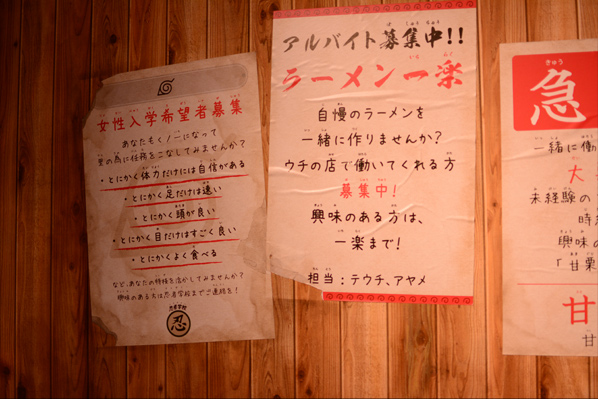 女性入学希望者募集
あなたもくノ一になって
里の為に任務をこなしてみませんか?
・とにかく体力だけには自信がある
・とにかく足だけは速い
・とにかく頭が良い
・とにかく目だけはすごく良い
・とにかくよく食べる
など、あなたの特技を活かしてみませんか?
興味のある方は忍者学校までご連絡を!
忍者学校
忍
アルバイト募集中!!
ラーメン一楽
自慢のラーメンを
一緒に作りませんか?
ウチの店で働いてくれる方
募集中!
興味のある方は、
一楽まで!
担当:テウチ、アヤメ
急
一緒に働
大
未経験の
時
興味の
「甘栗
甘
甘